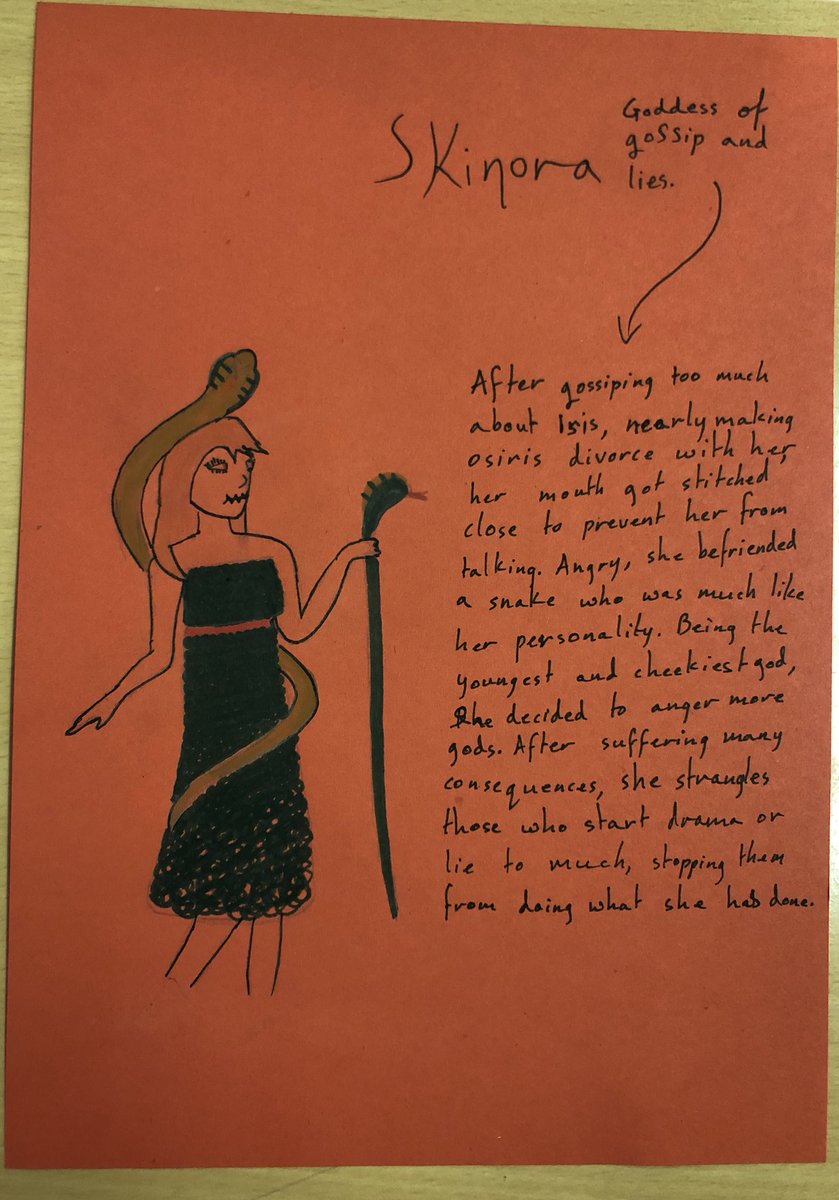 Skinora
Goddess of
gossip and
lies.
After gossiping too much
about Isis, nearly making
osiris divorce with her,
her mouth got stitched
close to prevent her from
talking. Angry, she befriended
a snake who was much like
her personality. Being the
youngest and cheekiest god,
she decided to anger more
gods. After suffering many
consequences, she strangles
those who start drama or
lie to much, stopping them
from doing what she has done.